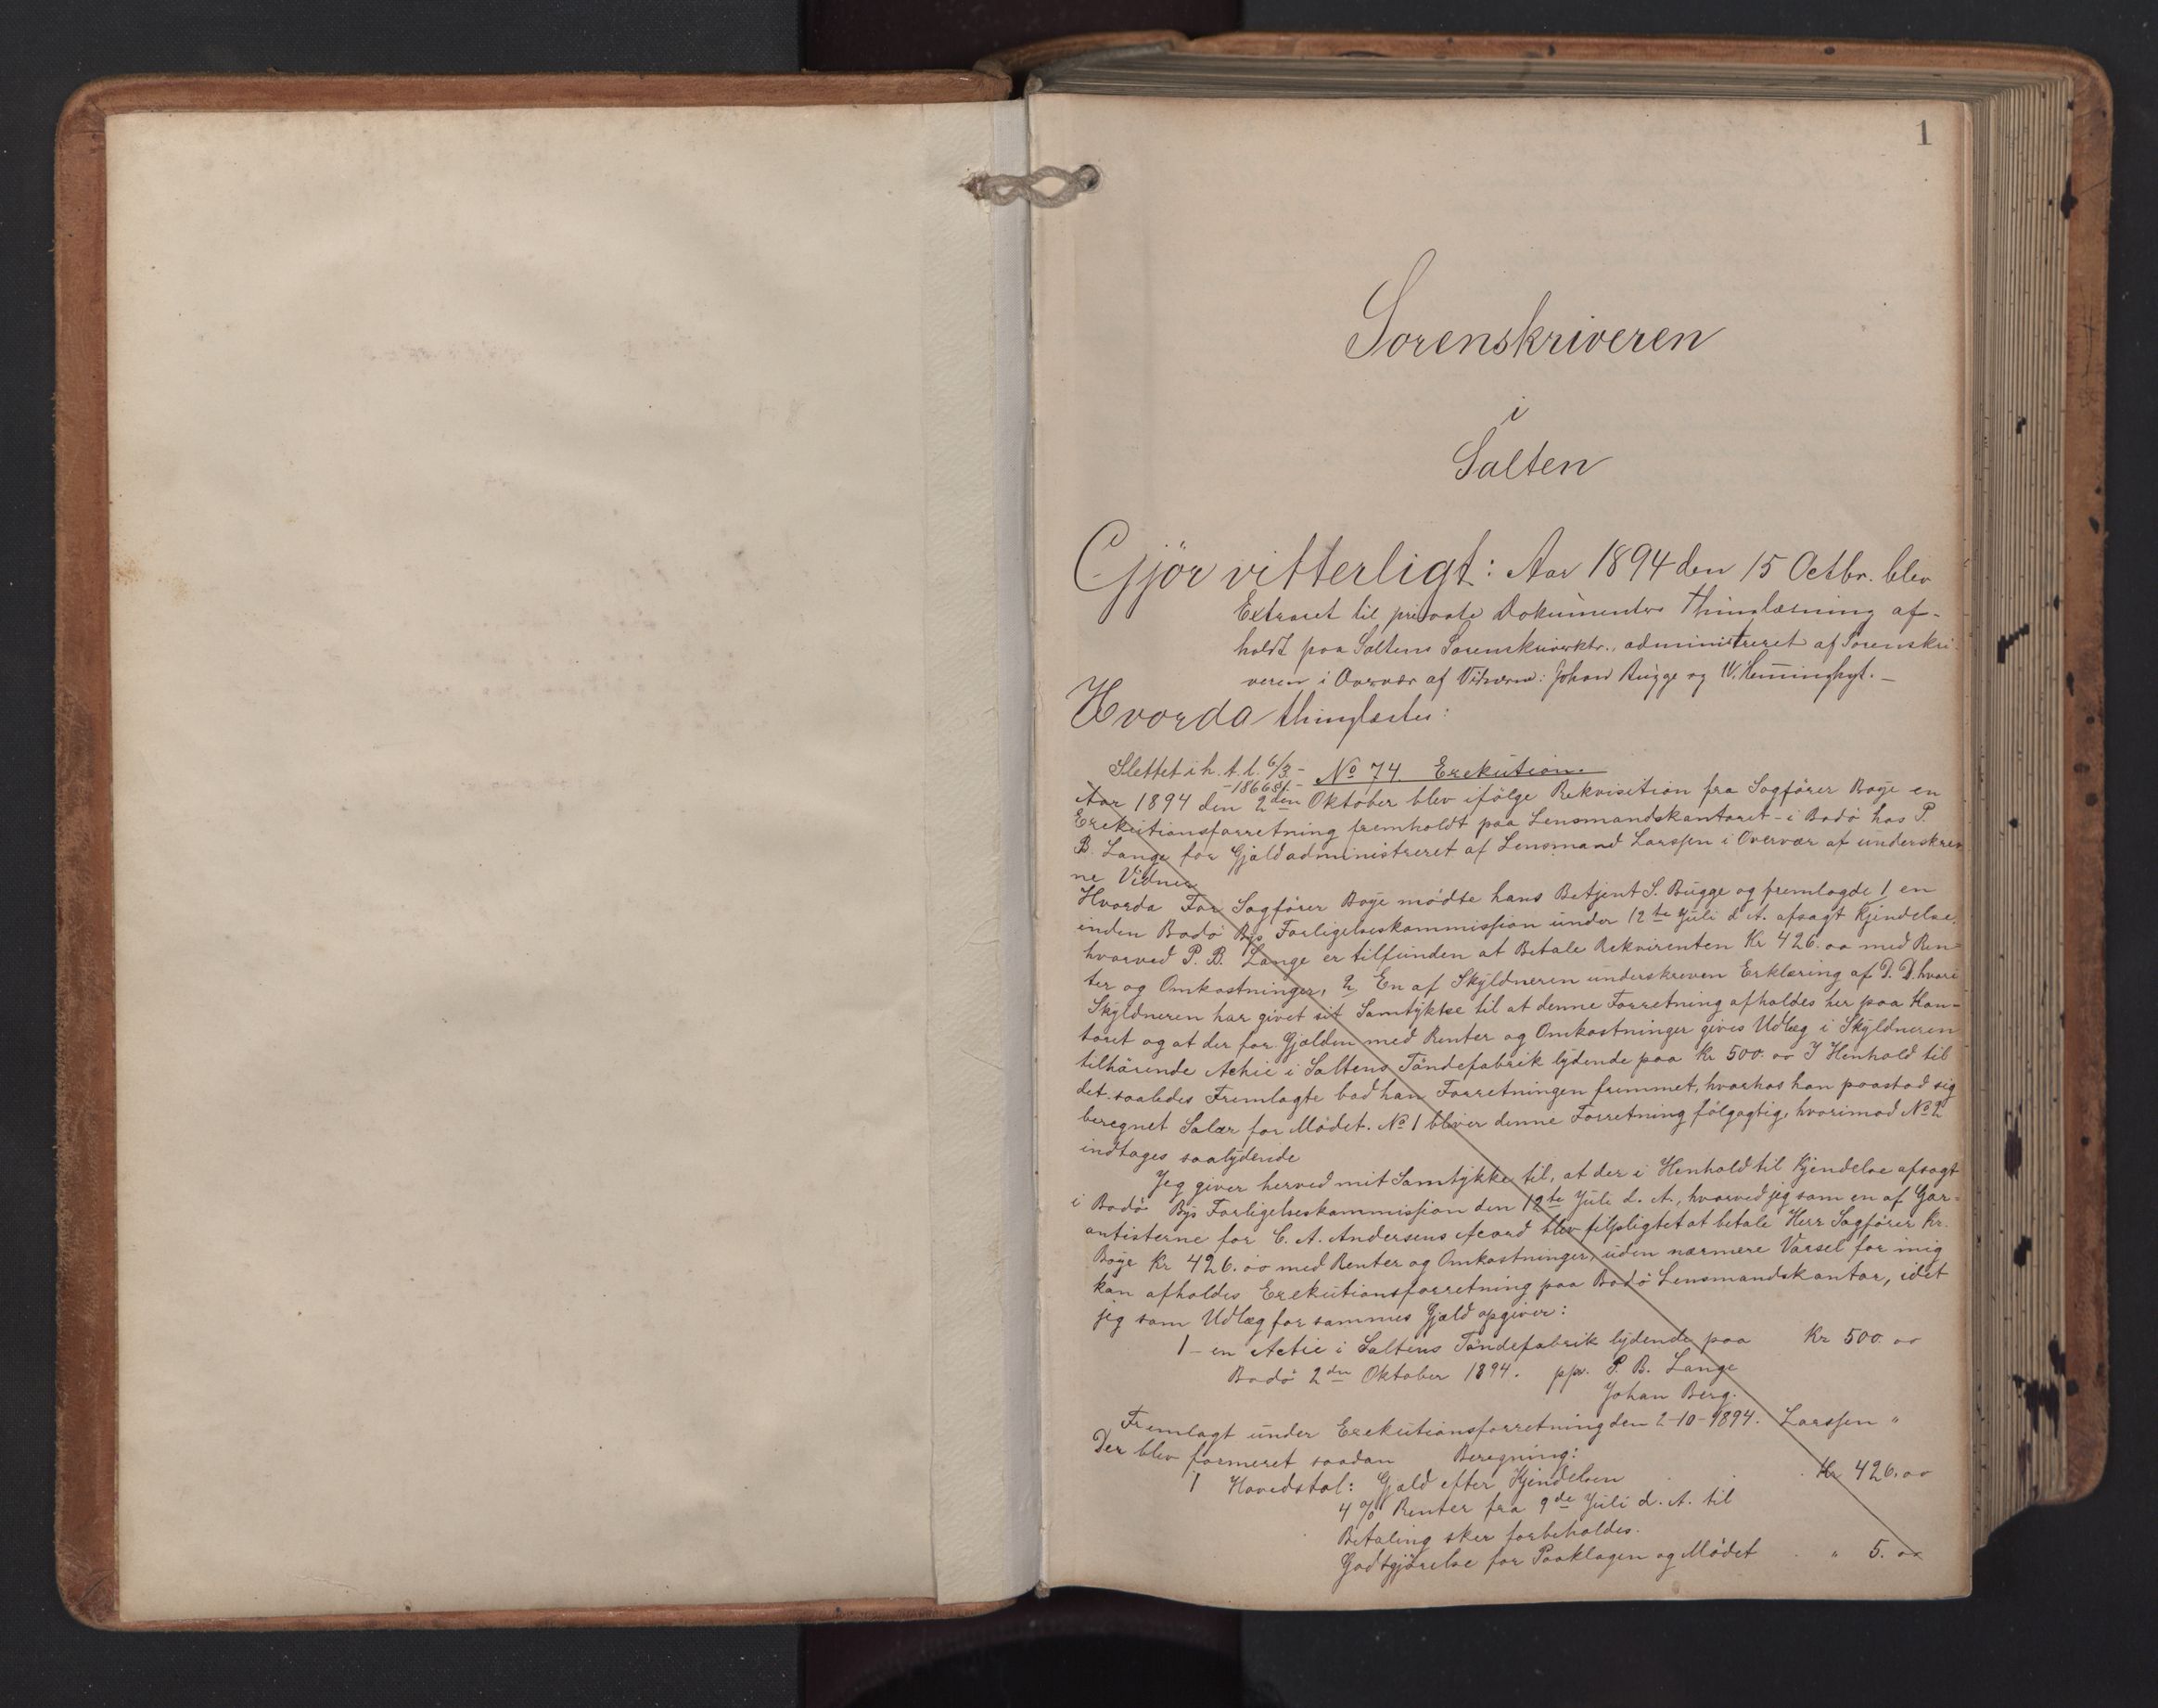 1
Sorenskriveren
i
Salten
Gjör vitterligt: Aar 1894 den 15 Octbr. blev
Extraret til private Dokumenters Thinglæsning af-
holdt paa Saltens Sorenskriverktr., administreret af Sorenskri-
veren i Overvær af Vidnerne: Johan Bugge og W. Henninghyt. —
Hvorda thinglæstes:
Slettet i h. t. l. 6/3 - No 74. Exekution.
Aar 1894 den 2den Oktober blev ifølge Rekvisition fra Sagfører Boye en
Exekutionsforretning fremholdt paa Lensmandskontoret - i Bodö hos P.
B. Lange for Gjæld administreret af Lensmand Larssen i Overvær af underskrev
ne Vidner
Hvorda For Sagfører Boye mödte hans Betjent S. Bugge og fremlagde 1 en
inden Bodö Bys Forligelseskommission under 12te Juli d. A. afsagt Kjendelse,
hvorved P. B. Lange er tilfunden at Betale Rekvirenten Kr 426.oo med Ren-
ter og Omkostninger, 2, En af Skyldneren underskreven Erklæring af D. D. hvori
Skyldneren har givet sit Samtykke til at denne Forretning afholdes her paa Kon-
toret og at der for Gjælden med Renter og Omkostninger gives Udlæg i Skyldneren
tilhörende Actie i Saltens Töndefabrik lydende paa Kr 500.oo I Henhold til
det saaledes Fremlagte bad han Forretningen fremmet, hvorhos han paastod sig
beregnet Salær for Mödet. No 1 bliver denne Forretning fölgagtig, hvorimod No 2
indtages saalydende
Jeg giver herved mit Samtykke til, at der i Henhold til Kjendelse afsagt
i Bodö Bys Forligelseskommission den 12te Juli d. A., hvorved jeg som en af Gar-
antisterne for C. A. Andersens Acord blev tilpligtet at betale Herr Sagfører Kr.
Boye Kr 426.oo med Renter og Omkostninger, uden nærmere Varsel for mig
kan afholdes Exekutionsforretning paa Bodö Lensmandskontor, idet
jeg som Udlæg for sammes Gjæld opgiver:
1 - en Actie i Saltens Töndefabrik lydende paa Kr 500 oo
Bodö 2den Oktober 1894. ppr. P. B. Lange
Johan Berg.
Fremlagt under Exekutionsforretning den 2-10-1894. Larssen "
Der blev formeret saadan Beregning:
1 Hovedstol: Gjæld efter Kjendelsen Kr 426.oo
4 % Renter fra 9de Juli d. A. til
Betaling sker forbeholdes.
Godtgjörelse for Paaklagen og Mödet " 5.oo